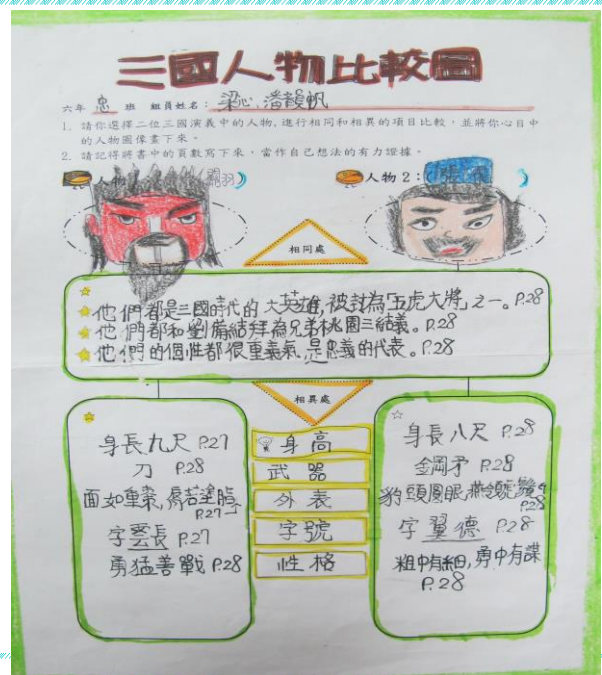 三國人物比較圖
六年 忠 班 組員姓名：梁心、潘韻帆
1. 請你選擇二位三國演義中的人物，進行相同和相異的項目比較，並將你心目中
的人物圖像畫下來。
2. 請記得將書中的頁數寫下來，當作自己想法的有力證據。
人物 (關羽)
人物 2：(張飛)
相同處
☆他們都是三國時代的大英雄，被封為「五虎大將」之一。P.28
☆他們都和劉備結拜為兄弟桃園三結義。P.28
☆他們的個性都很重義氣，是忠義的代表。P.28
相異處
身長九尺 P.27
刀 P.28
面如重棗，唇若塗脂。P.27
字雲長 P.27
勇猛善戰 P.28
身高
武器
外表
字號
性格
身長八尺 P.28
金鋼矛 P.28
豹頭圓眼，
P.28
字翼德 P.28
粗中有細，勇中有謀
P.28